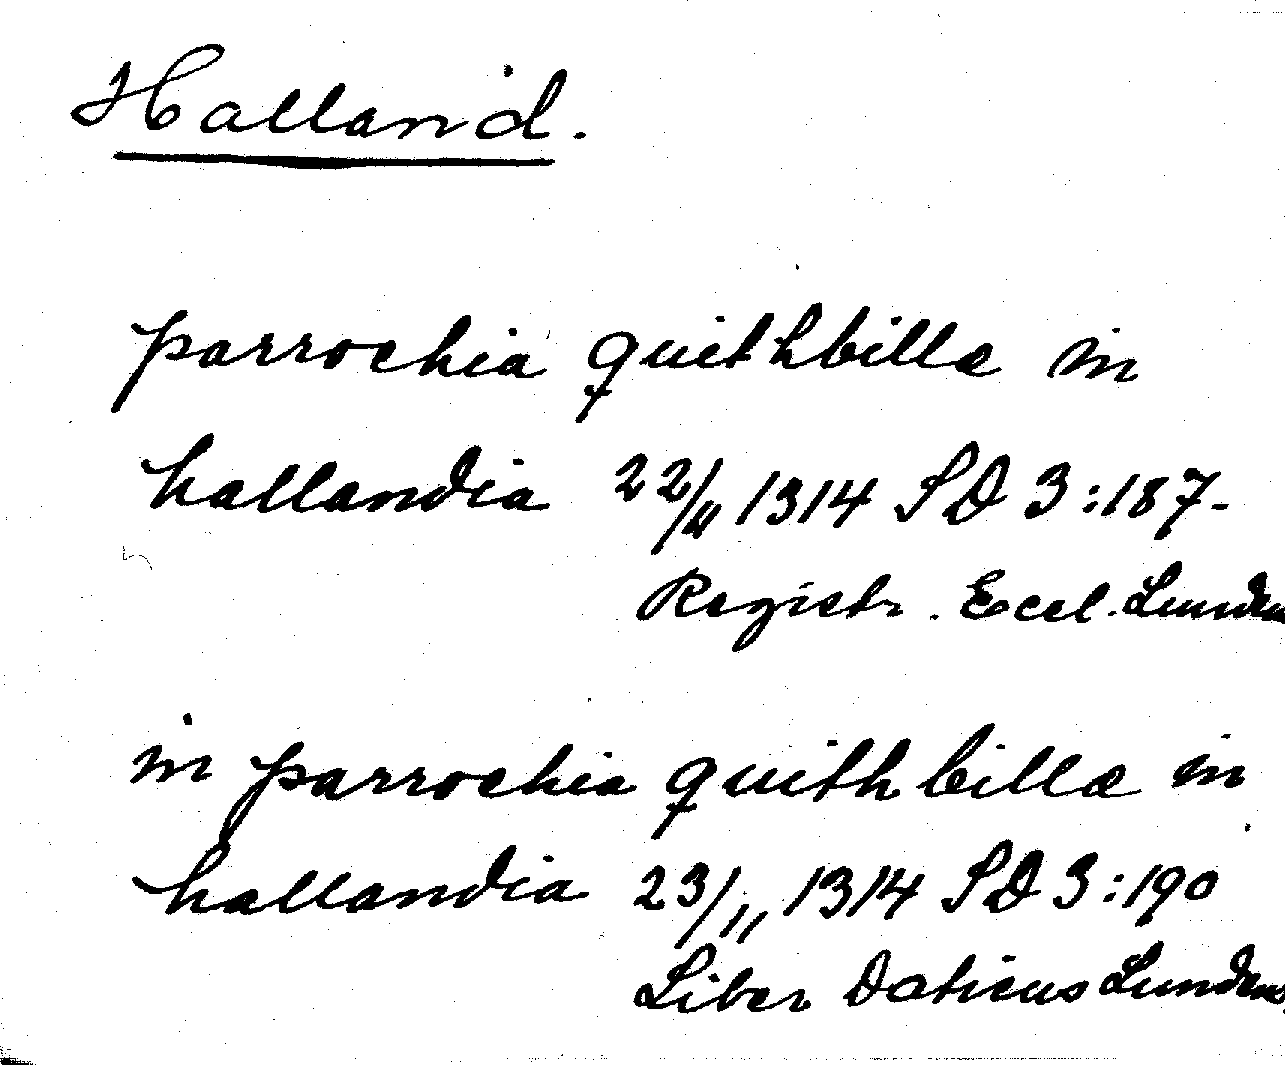 Halland.
parrochia quithbillæ in
hallandia 22/11 1314 SD 3:187-
Registr. Eccl. Lunden
in parrochia quithbillæ in
hallandia 23/11 1314 SD 3:190
Liber Daticus Lundens.